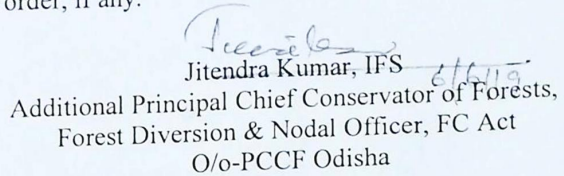 order, if any.
Jitendra Kumar, IFS
6/6/19
Additional Principal Chief Conservator of Forests,
Forest Diversion & Nodal Officer, FC Act
O/o-PCCF Odisha